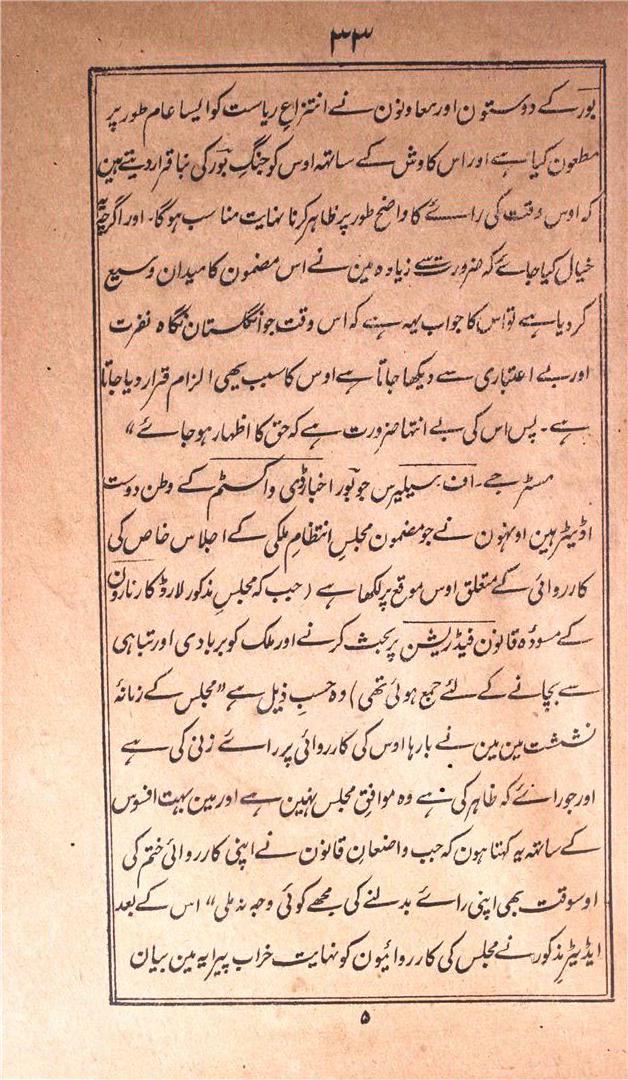 ۳۳
بور کے دوستون اور معاونون نے انتزاعِ ریاست کو ایسا عام طور پر
مطعون کیا ہے اور اس کاوش کے ساتھہ اوس کو جنگِ بور کی بنا قرار دیتے ہین
کہ اوس وقت کی رائے کا واضح طور پر ظاہر کرنا نہایت مناسب ہوگا۔ اور اگرچہ یہ
خیال کیا جائے کہ ضرورت سے زیادہ مین نے اس مضمون کا میدان وسیع
کر دیا ہے تو اس کا جواب یہہ ہے کہ اس وقت جو انگلستان نگاہ نفرت
اور بے اعتباری سے دیکھا جاتا ہے اوس کا سبب بھی الزام قرار دیا جاتا
ہے۔ پس اس کی بے انتہا ضرورت ہے کہ حق کا اظہار ہو جائے“
مسٹر جے۔ اف۔ سیلیرس جو بور اخبار ڈی واکسٹم کے وطن دوست
اڈیٹر ہین اونہون نے جو مضمون مجلسِ انتظامِ ملکی کے اجلاس خاص کی
کارروائی کے متعلق اوس موقع پر لکھا ہے (جب کہ مجلسِ مذکور لارڈ کارناروَن
کے مسوّدہ قانون فیڈریشن پر بحث کرنے اور ملک کو بربادی اور تباہی
سے بچانے کے لئے جمع ہوئی تھی) وہ حسبِ ذیل ہے ”مجلس کے زمانۂ
نشست مین مین نے بارہا اوس کی کارروائی پر رائے زنی کی ہے
اور جو رائے کہ ظاہر کی ہے وہ موافقِ مجلس نہین ہے اور مین بہت افسوس
کے ساتھہ یہ کہتا ہون کہ جب واضعانِ قانون نے اپنی کارروائی ختم کی
اوسوقت بھی اپنی رائے بدلنے کی مجھے کوئی وجہ نہ ملی“ اس کے بعد
ایڈیٹر مذکور نے مجلس کی کارروائیون کو نہایت خراب پیرایہ مین بیان
۵